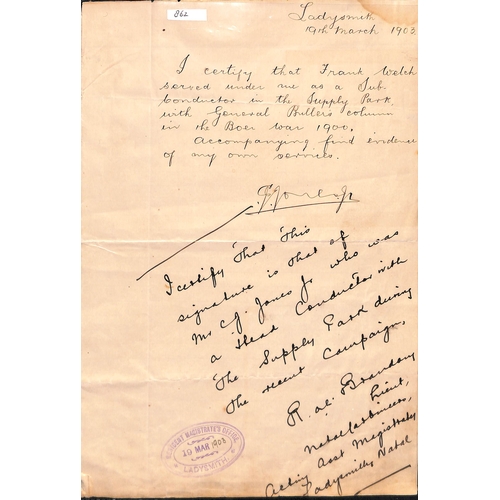 862
Ladysmith
19th March 1903
I certify that Frank Welch
served under me as a Sub.
Conductor in the Supply Park
with General Bullers column
in the Boer War 1900.
Accompanying find evidence
of my own services.
I certify that this
signature is that of
Mr C.J. Jones Jr who was
a Head Conductor with
the Supply Park during
the recent Campaign.
Lieut,
Natal Carbineers,
Acting Asst Magistrate
Ladysmith, Natal
RESIDENT MAGISTRATE'S OFFICE
19 MAR 1903
LADYSMITH.